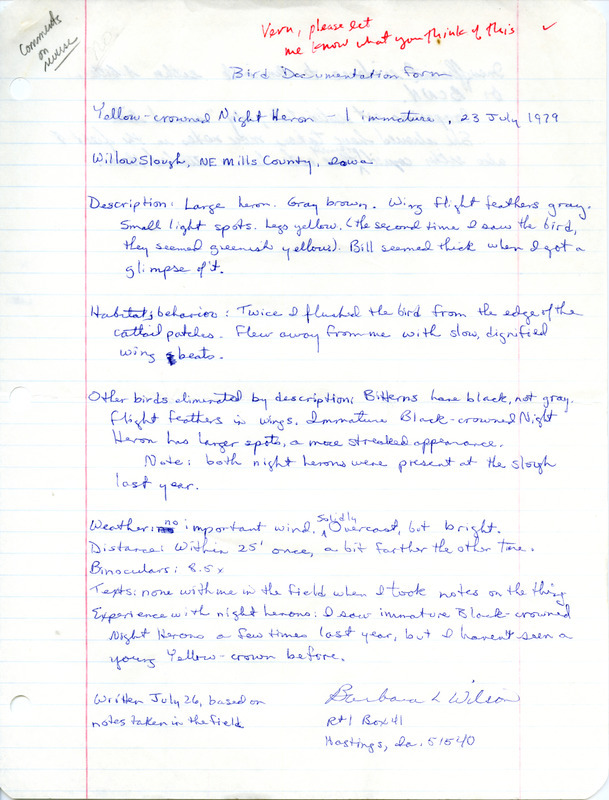 Comments
on
reverse
Vern, please let
me know what you think of this ✓
Bird Documentation Form
Yellow-crowned Night Heron - 1 immature, 23 July 1979
Willow Slough, NE Mills County, Iowa
Description: Large heron. Gray brown. Wing flight feathers gray.
Small light spots. Legs yellow. (the second time I saw the bird,
they seemed greenish yellow). Bill seemed thick when I got a
glimpse of it.
Habitat; behavior: Twice I flushed the bird from the edge of the
cattail patches. Flew away from me with slow, dignified
wing beats.
Other birds eliminated by description: Bitterns have black, not gray.
flight feathers in wings. Immature Black-crowned Night
Heron has larger spots, a more streaked appearance.
Note: both night herons were present at the slough
last year.
Weather: no important wind. Solidly Overcast, but bright.
Distance: Within 25' once, a bit farther the other time.
Binoculars: 8.5x
Texts: none with me in the field when I took notes on the thing
Experience with night herons: I saw immature Black-crowned
Night Herons a few times last year, but I haven't seen a
young Yellow-crown before.
Written July 26, based on
notes taken in the field
Barbara L Wilson
Rt 1 Box 41
Hastings, Ia. 51540